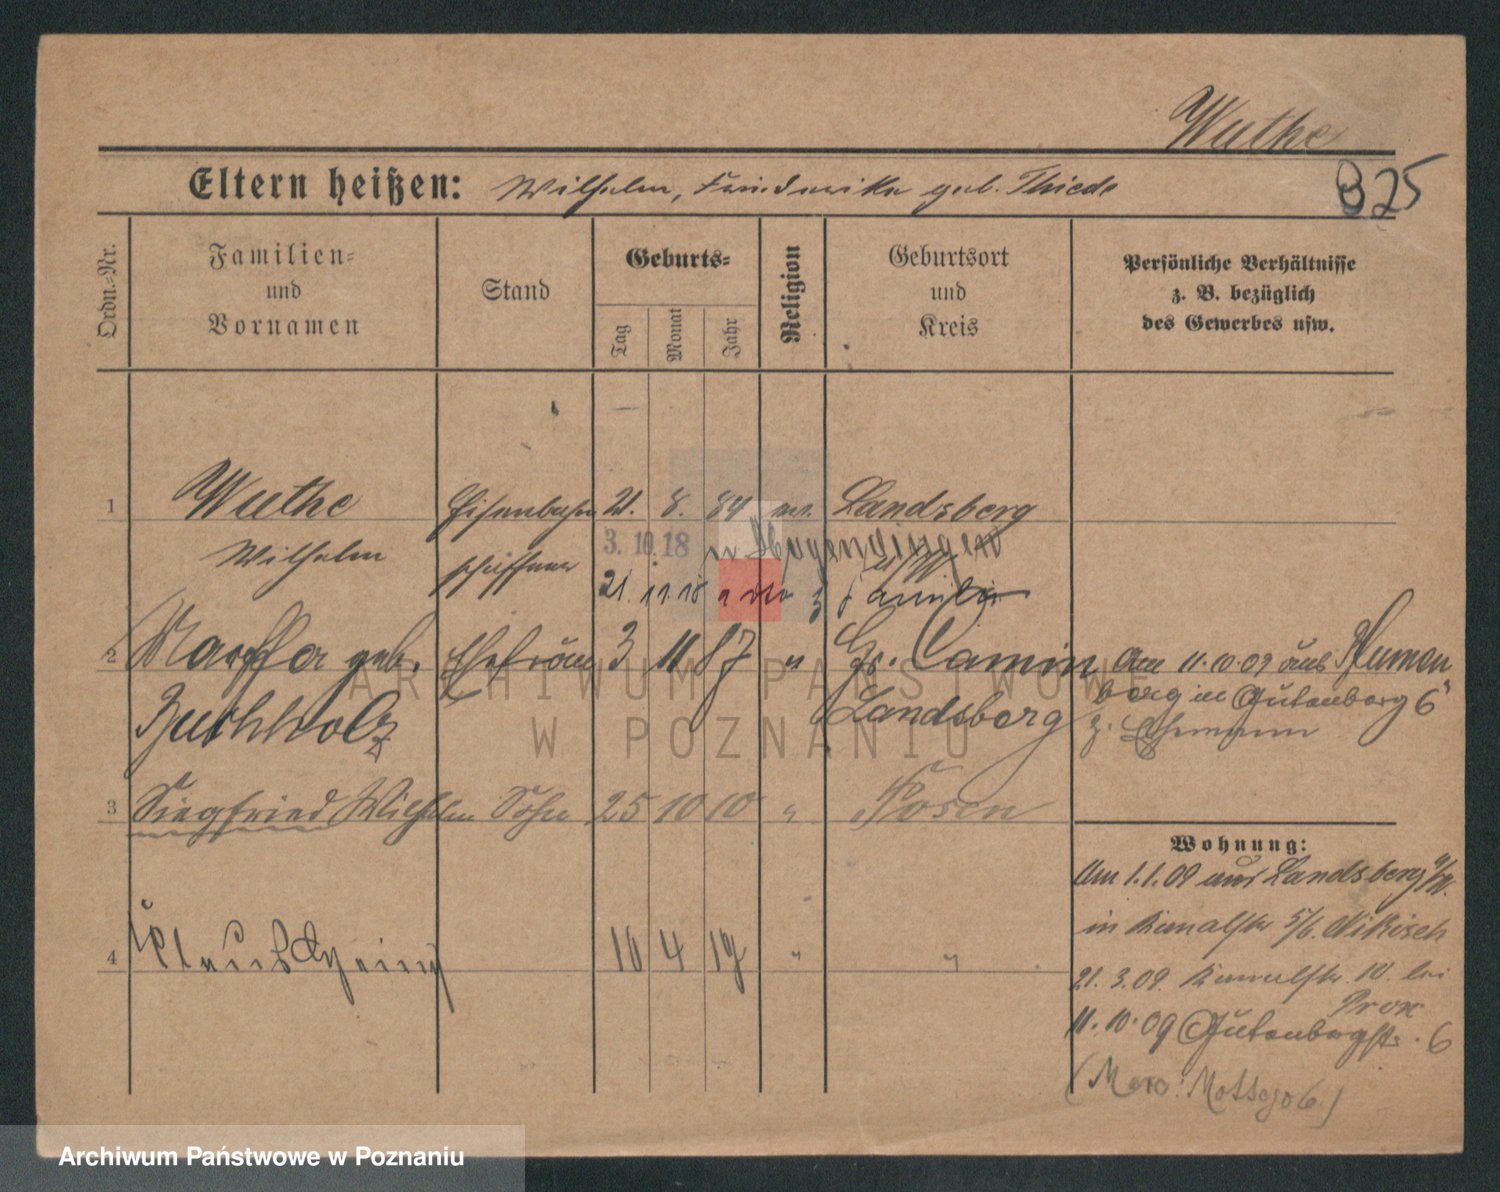 Wuthe
B 25
Eltern heißen: Wilhelm, Friederike geb. Thiede
Ordn.-Nr.
Familien-
und
Vornamen
Stand
Geburts-
Tag
Monat
Jahr
Religion
Geburtsort
und
Kreis
Persönliche Verhältnisse
z. B. bezüglich
des Gewerbes usw.
1 Wuthe Eisenbahn 21. 8. 84 ev. Landsberg
Wilhelm schaffner
3. 10. 18
21. 11. 18 Familie
2 Martha geb. Ehefrau 3 11 87 " Gr. Camin
Buchholz Landsberg
Am 11.10.09 aus Blumen
berg in Gutenberg 6
z. Ehemann
3 Siegfried Wilhelm Sohn 25 10 10 " Posen
4 Klaus Heinz 10 4 19 " "
Wohnung:
Am 1.1.09 aus Landsberg a/W.
in Kanalstr 5/6. Nikisch
21. 3. 09. Kanalstr. 10. bei
11. 10. 09 Gutenbergstr. 6
ARCHIWUM PAŃSTWOWE
W POZNANIU
Archiwum Państwowe w Poznaniu